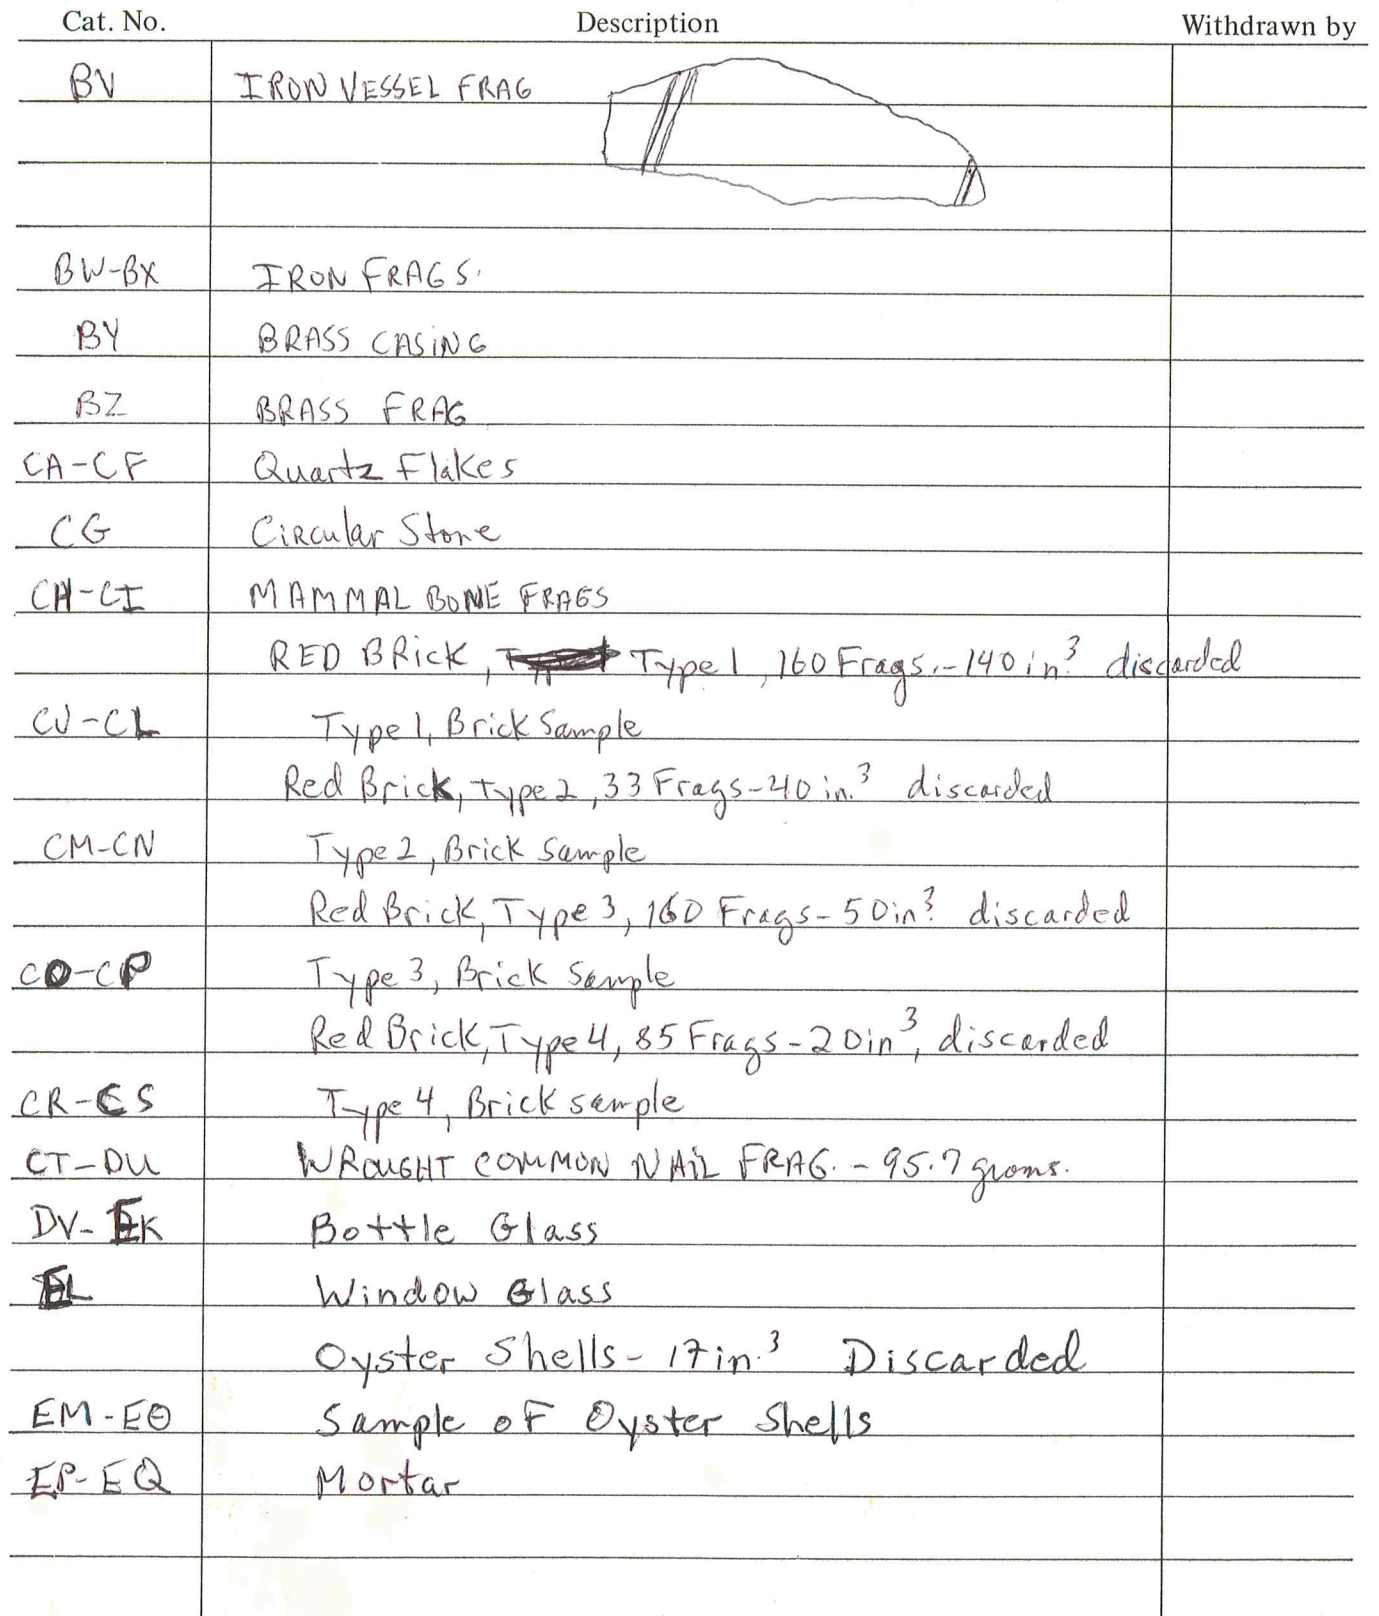 Cat. No. Description Withdrawn by
BV IRON VESSEL FRAG
BW-BX IRON FRAGS.
BY BRASS CASING
BZ BRASS FRAG
CA-CF Quartz Flakes
CG Circular Stone
CH-CI MAMMAL BONE FRAGS
RED BRick, Type 1, 160 Frags.-140 in.3 discarded
CJ-CL Type 1, Brick Sample
Red Brick, Type 2, 33 Frags-40 in.3 discarded
CM-CN Type 2, Brick Sample
Red Brick, Type 3, 160 Frags-50in.3 discarded
CO-CP Type 3, Brick Sample
Red Brick, Type 4, 85 Frags-20in3, discarded
CR-CS Type 4, Brick sample
CT-DU WROUGHT COMMON NAIL FRAG. - 95.7 grams.
DV-EK Bottle Glass
EL Window Glass
Oyster Shells- 17in.3 Discarded
EM-EO Sample of Oyster Shells
EP-EQ Mortar